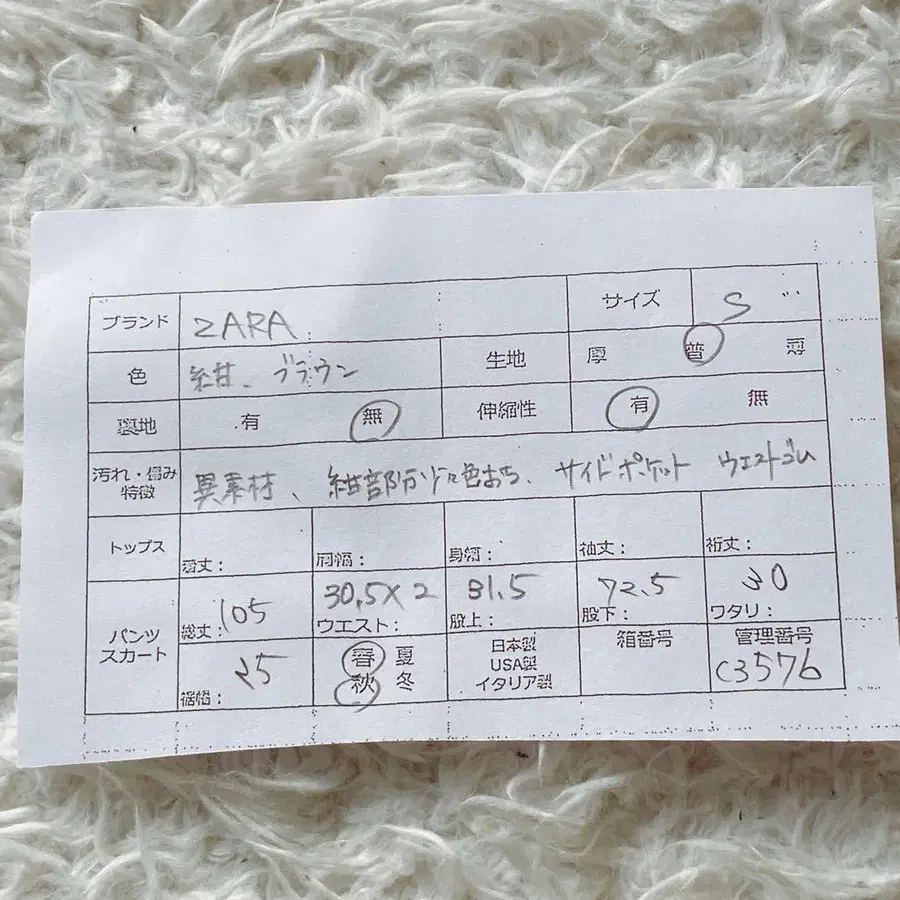 ブランド ZARA サイズ S
色 紺、ブラウン 生地 厚 普 薄
裏地 有 無 伸縮性 有 無
汚れ・傷み
特徴 異素材、紺部分少々色おち、サイドポケット ウエストゴム
トップス 着丈: 肩幅: 身幅: 袖丈: 裄丈:
パンツ
スカート
105 30.5×2 31.5 72.5 30
総丈: ウエスト: 股上: 股下: ワタリ:
25 春 夏 日本製 箱番号 管理番号
秋 冬 USA製 C3576
裾幅: イタリア製